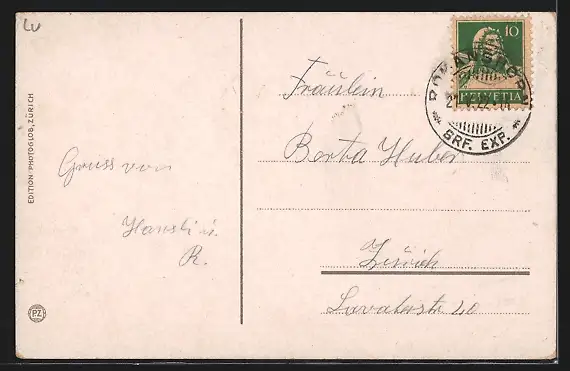 LU
10
HELVETIA
ROMANSHORN
21.V.22
BRF. EXP.
Fräulein
Berta Huber
Zürich
Lavaterstr 40
Gruss von
Hansli u.
R.
EDITION PHOTOGLOB, ZÜRICH
PZ